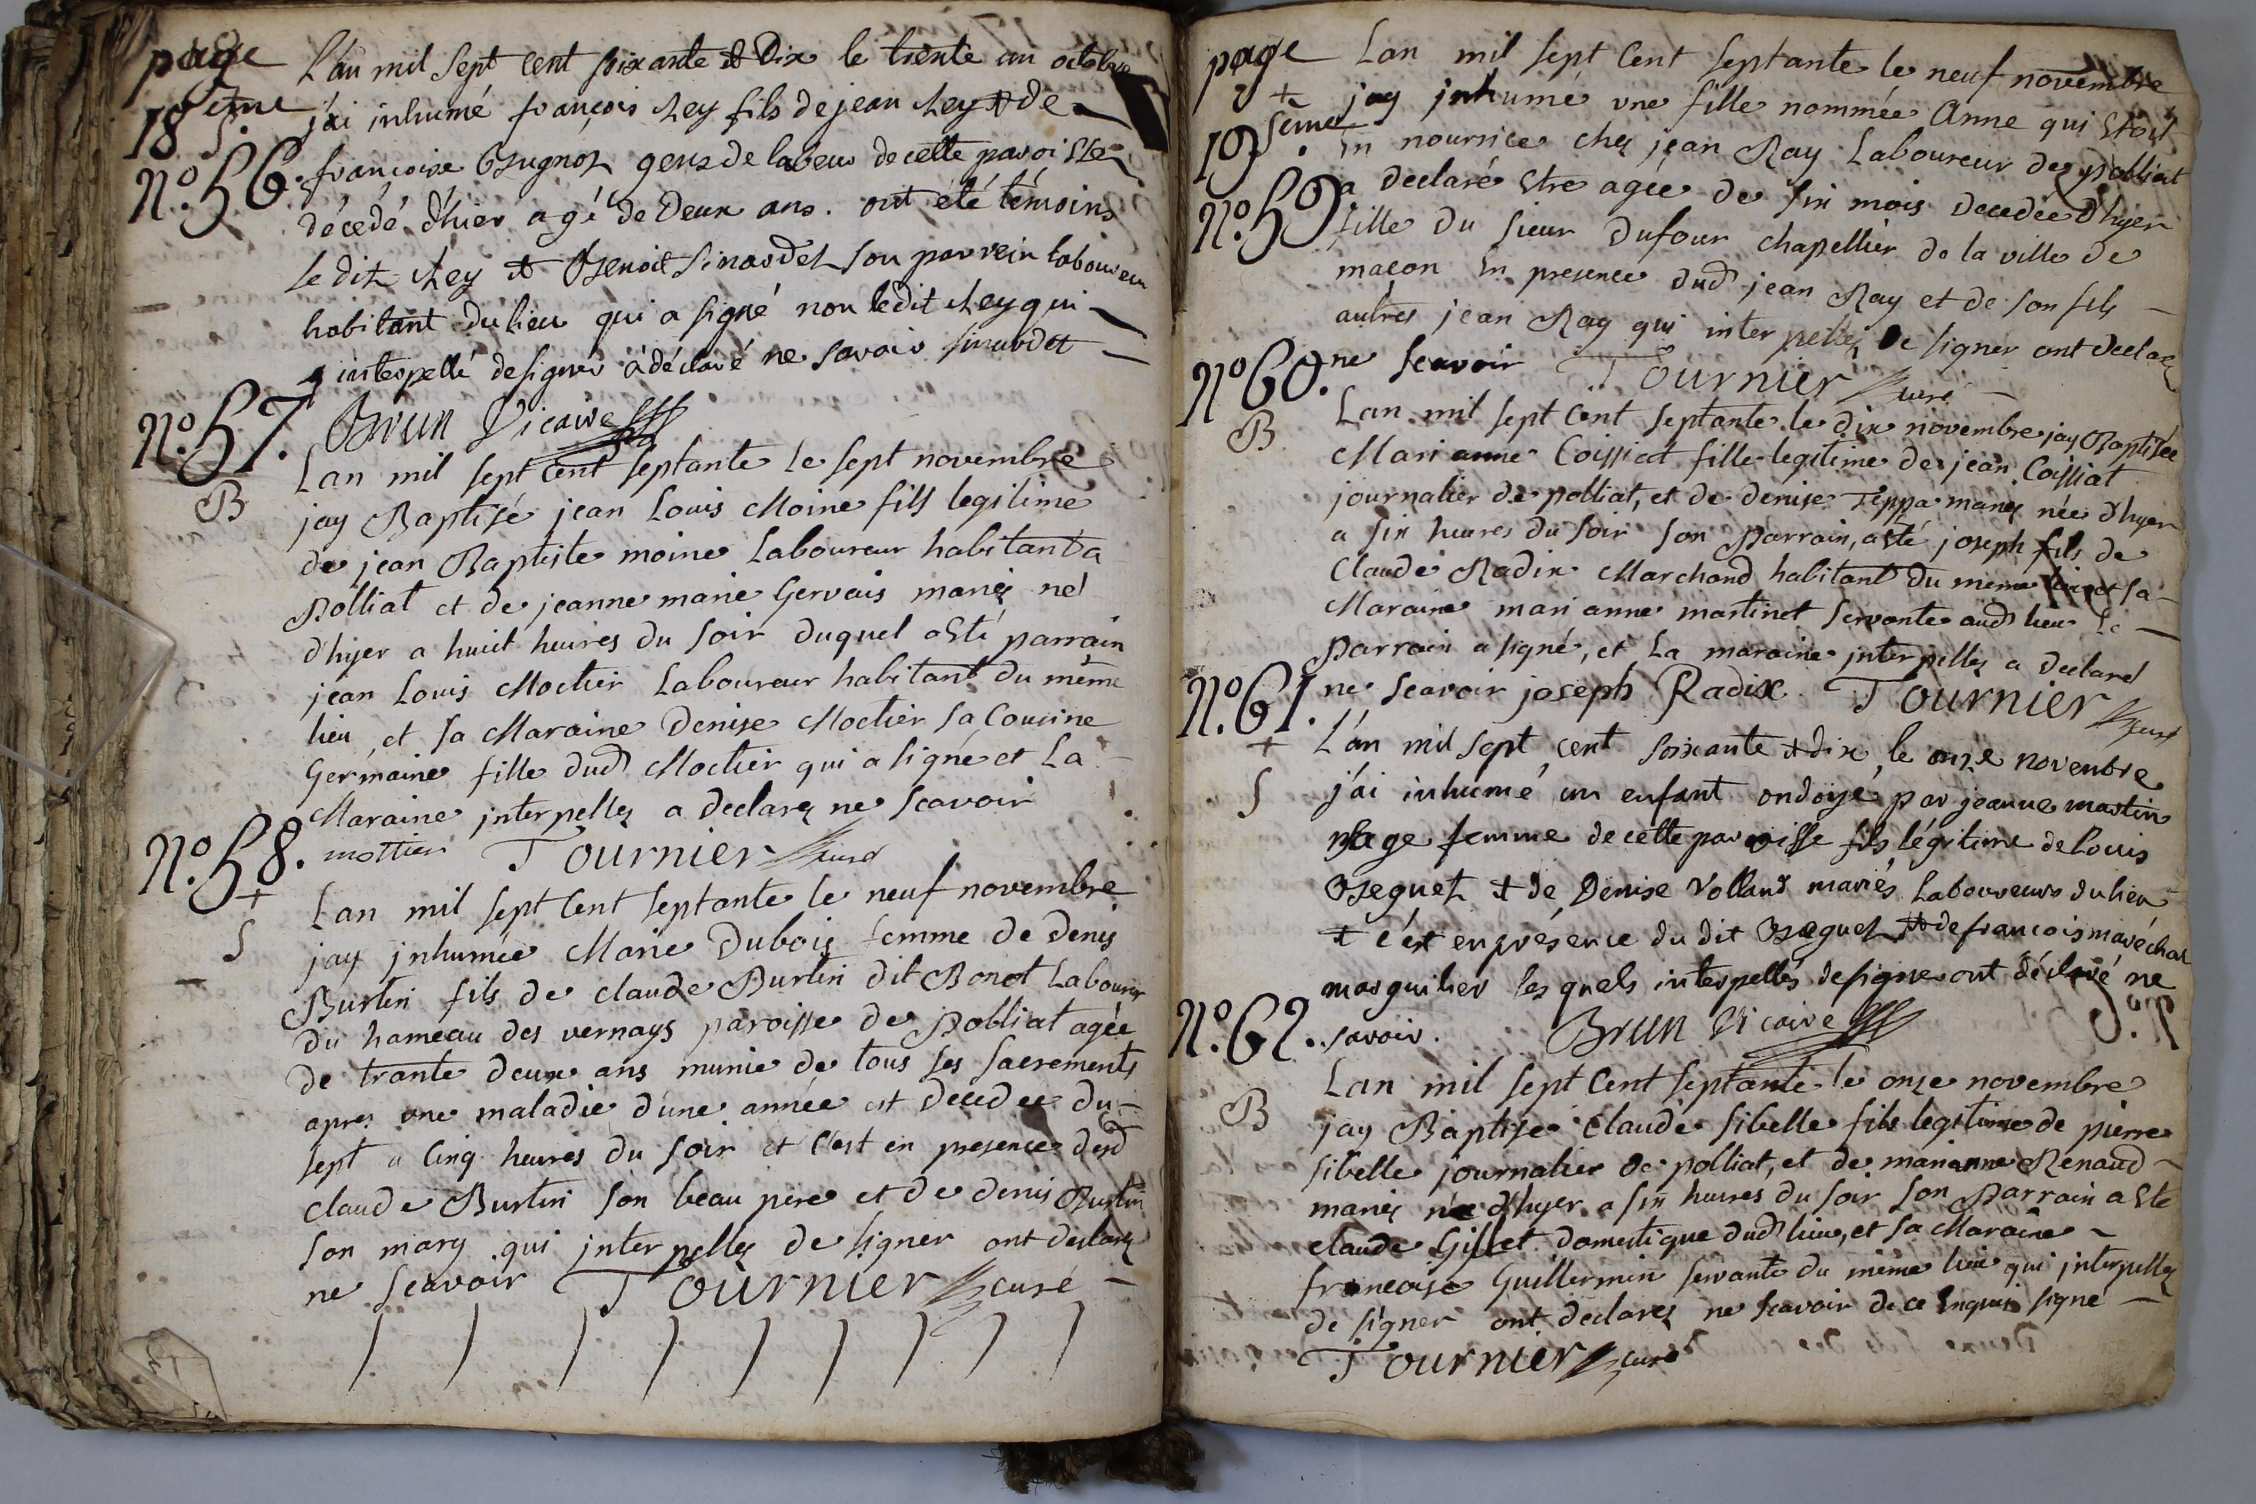 page
18 eme
S.
L'an mil Sept cent soixante et Dix le trente un octobre
j'ai inhumé françois Rey fils de jean Rey et de
N.o 56. françoise gens de labeur de cette paroisse
décédé d'hier agé de Deux ans. ont été témoins
le dit Rey et Benoit Sinardet son parrein laboureur
habitant du lieu qui a signé non ledit Rey qui
interpellé de signer à déclaré ne savoir Sinardet
N.o 57. Brun Vicaire
B
Lan mil sept Cent septante le sept novembre
jay Baptisé jean Louis Moine fils legitime
de jean Baptiste moine Laboureur habitant a
Polliat et de jeanne marie Gervais mariés né
d'hyer a huit heures du soir duquel a esté parrain
jean Louis Moctier Laboureur habitant du même
lieu, et sa Maraine Denise Moctier sa Cousine
Germaine fille dud Moctier qui a signé et La
Maraine interpellez a declarez ne scavoir
N.o 58. mottier Tournier curé
+
S
Lan mil sept Cent septante le neuf novembre
jay jnhumée Marie Dubois femme de Denis
Burtin fils de claude Burtin dit Bonot Laboureur
du hameau des vernays paroisse de Polliat agée
de trante deux ans munie de tous ses sacrements
apres une maladie d'une année est decedee du
sept a Cinq heures du soir et c'est en presence dud
claude Burtin son beau pere et de denis Burtin
son mary qui interpellez de signer ont declarez
ne scavoir Tournier curé
page
19 eme.
+
S
Lan mil sept Cent septante le neuf novembre
jay jnhumé une fille nommée Anne qui Etoit
En nourrice chez jean Ray Laboureur de polliat
N.o 59 a declaré Etre agée de six mois decedée d'hyer
fille du sieur Dufour chapellier de la ville de
macon En presence dud jean Ray et de son fils
autres jean Ray qui interpellez de signer ont declarez
N.o 60. ne scavoir Tournier curé
B
Lan mil sept Cent septante le dix novembre jay Baptisée
Marianne Coissiat fille legitime de jean Coissiat
journalier de polliat, et de denise Teppa mariez née d'hyer
a six heures du soir son Parrain, a esté joseph fils de
Claude Radix Marchand habitant du meme lieu et sa
Maraine marianne martinet servante aud lieu Le
Parrain a signé, et La maraine interpellez a declaré
N.o 61. ne scavoir joseph Radix Tournier curé
+
S
L'an mil sept cent soixante et dix le onze novembre
j'ai inhumé un enfant ondoyé par jeanne martin
sage femme de cette paroisse fils légitime de Louis
et de Denise Volland mariés Laboureurs du lieu
et c'est en présence du dit et de francois maréchal
marguilier lesquels interpellés de signer ont déclaré ne
N.o 62. savoir. Brun Vicaire
B
Lan mil sept Cent septante le onze novembre
jay Baptise Claude Sibelle fils legitime de pierre
Sibelle journalier de polliat, et de marianne Renaud
mariez né d'hyer a six heures du soir son Parrain a Esté
claude Gillet domestique dud lieu, et sa Maraine
francoise Guillermin servante du même lieu qui interpellez
de signer ont declarez ne scavoir de ce Enquis signé
Tournier curé